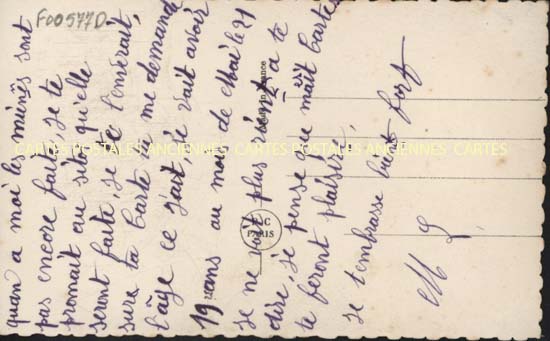 F00577D
quan a moi les mienès sont
pas encore faite, je te
promait au sitot qu'elle
seront faite, je te l'enverait,
sure ta Carte tu me demande
l'âge ce j'ait, je vait avoir
19 ans au mois de Mai le 21
je ne voit plus a te
dire, je pense que mait Carte
te feront plaisir,
je t'embrasse bient fort
M L
CARTES POSTALES ANCIENNES CARTES POSTALES ANCIENNES CARTES
PC
PARIS
Made in France